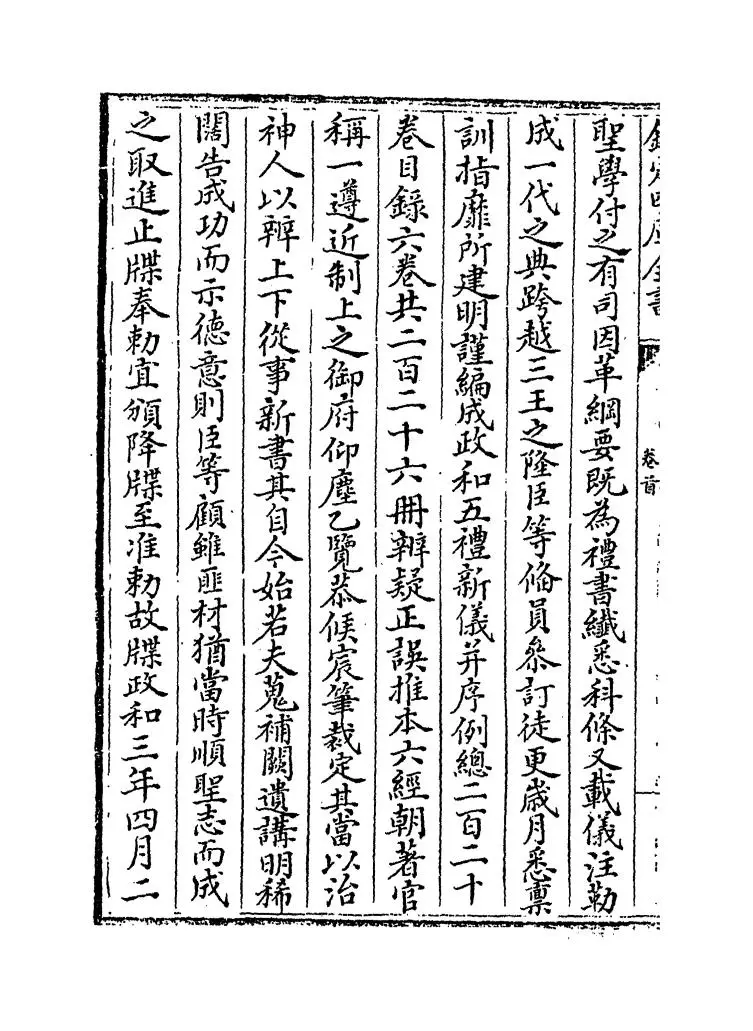 欽定四庫全書
卷首
聖學付之有司因革綱要既為禮書纎悉科條又載儀注勒
成一代之典跨越三王之隆臣等偹員叅訂徒更嵗月悉禀
訓指靡所建明謹編成政和五禮新儀并序例總二百二十
卷目錄六卷共二百二十六冊辨疑正誤推本六經朝著官
稱一遵近制上之御府仰塵乙覽恭候宸筆裁定其當以治
神人以辨上下從事新書其自今始若夫蒐補闕遺講明稀
闊告成功而示徳意則臣等顧雖匪材猶當時順聖志而成
之取進止牒奉勅宜頒降牒至准勅故牒政和三年四月二